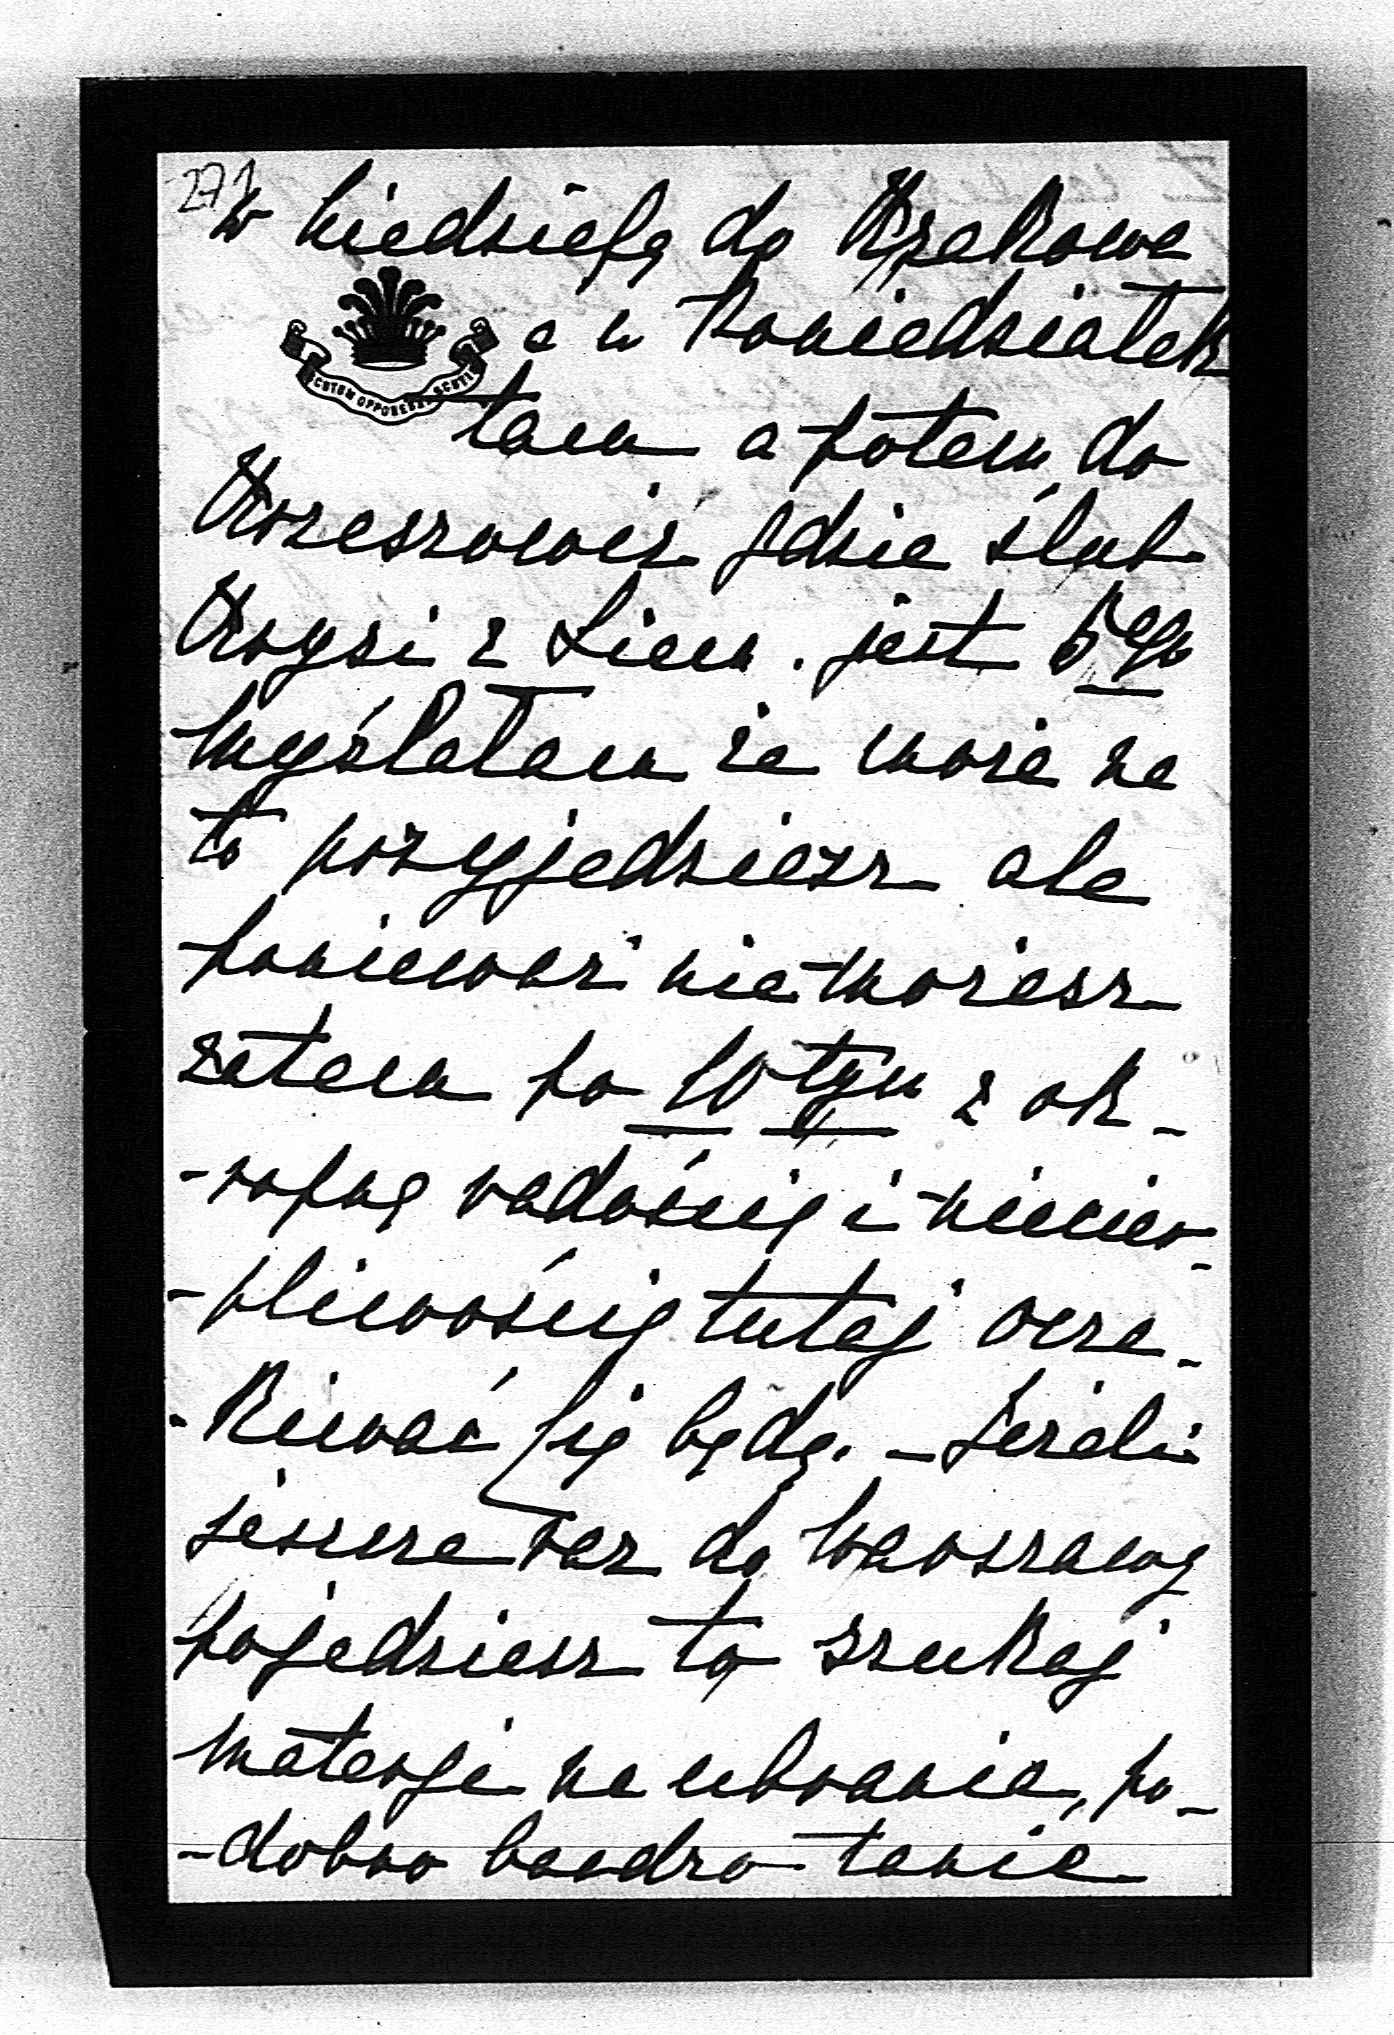 271
w Niedzielę do Krakowa
SCUTUM OPPONEBAT SCUTIS
a w Poniedziałek
tam a potem do
Krzeszowic gdzie ślub
Krysi z Liem. jest 6ego
Myślałam że może na
to przyjedziesz ale
ponieważ nie możesz
zatem po 10tym z ok-
-ropną radością i niecier-
-pliwością tutaj ocze-
-kiwać Cię będę. – Jeżeli
jeszcze raz do Warszawy
pojedziesz to szukaj
materji na ubranie, po-
-dobno bardzo tanie